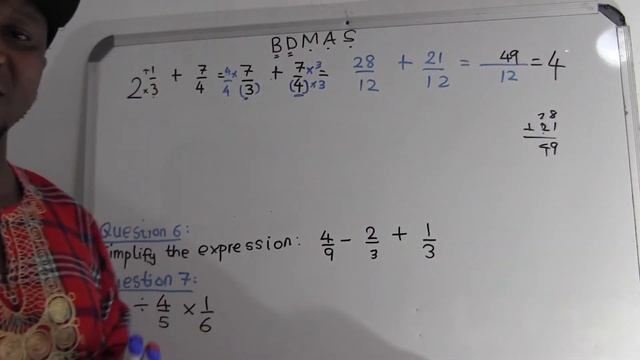 BDMAS
2 +1/×3 + 7/4 = 4/4 × 7/(3) + 7/(4) ×3/×3 = 28/12 + 21/12 = 49/12 = 4
28
+ 21
49
Question 6:
implify the expression: 4/9 - 2/3 + 1/3
uestion 7:
÷ 4/5 × 1/6